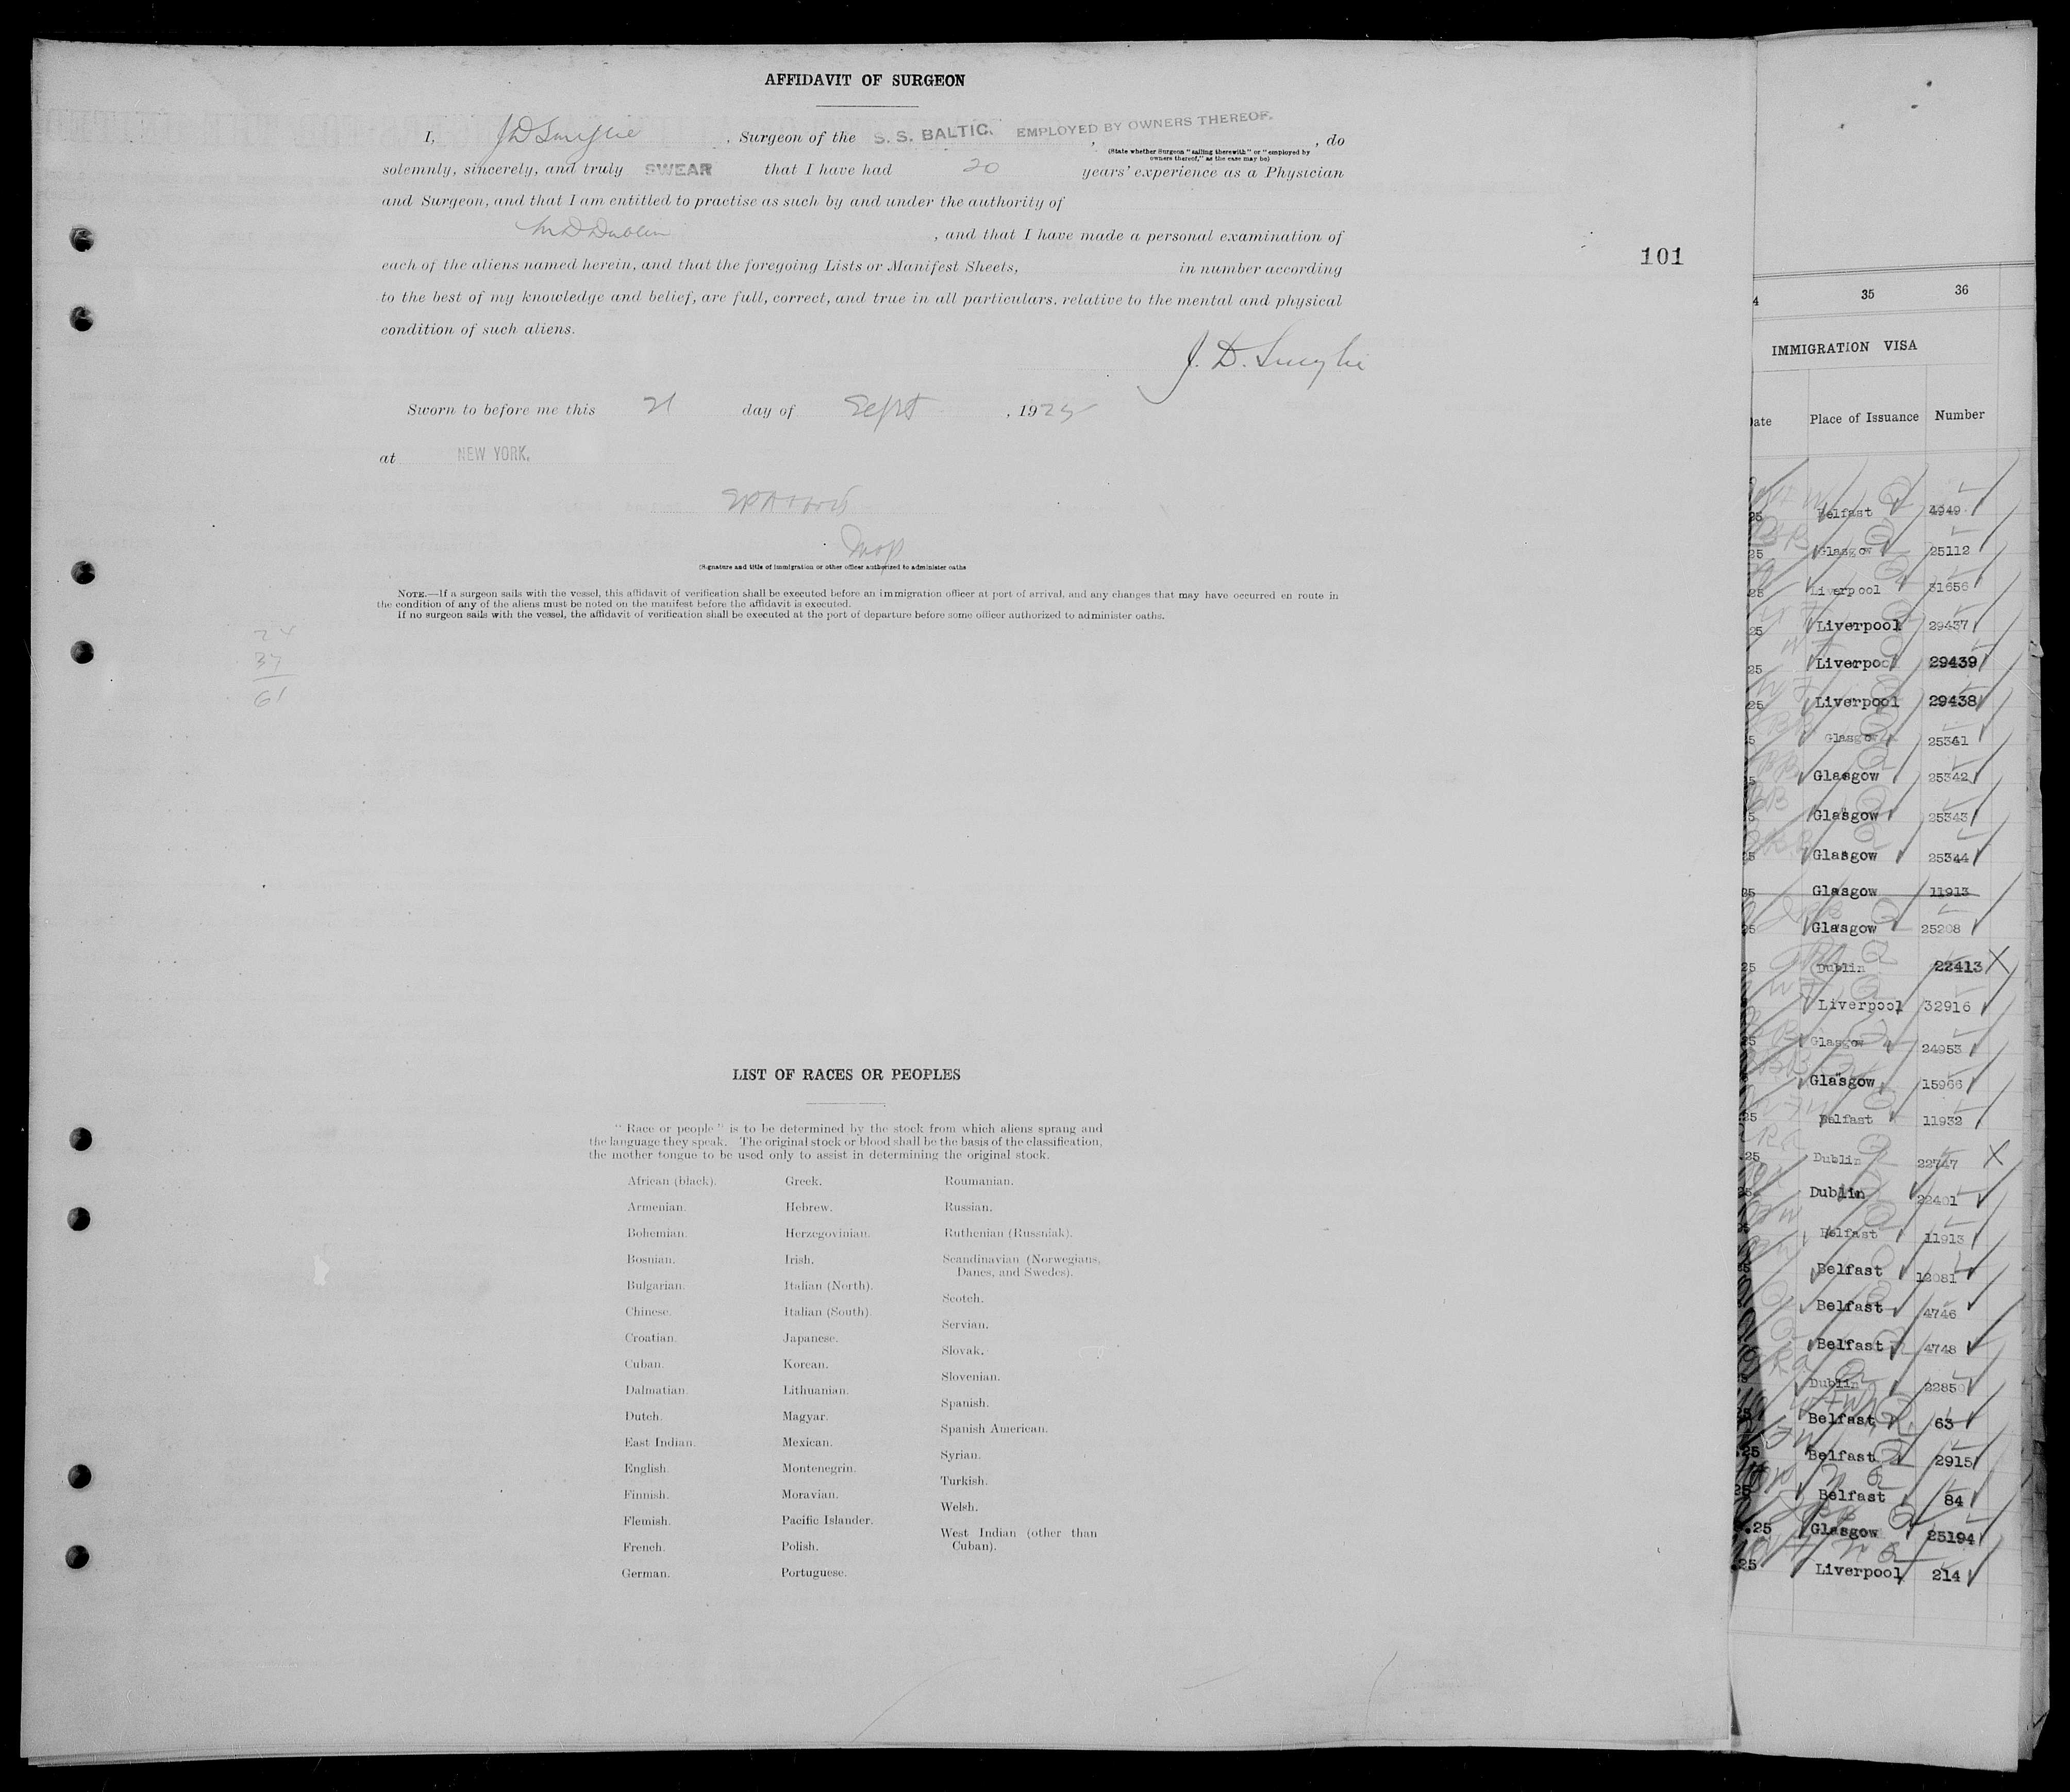 AFFIDAVIT OF SURGEON
I, J D Smylie, Surgeon of the S. S. BALTIC, EMPLOYED BY OWNERS THEREOF., do
(State whether Surgeon "sailing therewith" or "employed by
owners thereof," as the case may be)
solemnly, sincerely, and truly SWEAR that I have had 20 years' experience as a Physician
and Surgeon, and that I am entitled to practise as such by and under the authority of
M D Dublin, and that I have made a personal examination of
each of the aliens named herein, and that the foregoing Lists or Manifest Sheets, in number according
to the best of my knowledge and belief, are full, correct, and true in all particulars, relative to the mental and physical
condition of such aliens.
J. D. Smylie
Sworn to before me this 21 day of Sept, 1925
at NEW YORK.
Insp
(Signature and title of immigration or other officer authorized to administer oaths
NOTE.—If a surgeon sails with the vessel, this affidavit of verification shall be executed before an immigration officer at port of arrival, and any changes that may have occurred en route in
the condition of any of the aliens must be noted on the manifest before the affidavit is executed.
If no surgeon sails with the vessel, the affidavit of verification shall be executed at the port of departure before some officer authorized to administer oaths.
24
37
61
LIST OF RACES OR PEOPLES
"Race or people" is to be determined by the stock from which aliens sprang and
the language they speak. The original stock or blood shall be the basis of the classification,
the mother tongue to be used only to assist in determining the original stock.
African (black).
Armenian.
Bohemian.
Bosnian.
Bulgarian.
Chinese.
Croatian.
Cuban.
Dalmatian.
Dutch.
East Indian.
English.
Finnish.
Flemish.
French.
German.
Greek.
Hebrew.
Herzegovinian.
Irish.
Italian (North).
Italian (South).
Japanese.
Korean.
Lithuanian.
Magyar.
Mexican.
Montenegrin.
Moravian.
Pacific Islander.
Polish.
Portuguese.
Roumanian.
Russian.
Ruthenian (Russniak).
Scandinavian (Norwegians,
Danes, and Swedes).
Scotch.
Servian.
Slovak.
Slovenian.
Spanish.
Spanish American.
Syrian.
Turkish.
Welsh.
West Indian (other than
Cuban).
101
4 35 36
IMMIGRATION VISA
ate Place of Issuance Number
25 Belfast 4949
25 Glasgow 25112
25 Liverpool 31656
25 Liverpool 29437
25 Liverpool 29439
25 Liverpool 29438
5 Glasgow 25341
5 Glasgow 25342
5 Glasgow 25343
25 Glasgow 25344
25 Glasgow 11913
25 Glasgow 25208
25 Dublin 22413 X
Liverpool 32916
25 Glasgow 24953
Glasgow 15966
25 Belfast 11932
.25 Dublin 22747 X
Dublin 22401
Belfast 11913
Belfast 12081
Belfast 4746
Belfast 4748
Dublin 22850
25 Belfast 63
.25 Belfast 2915
25 Belfast 84
.25 Glasgow 25194
.25 Liverpool 214